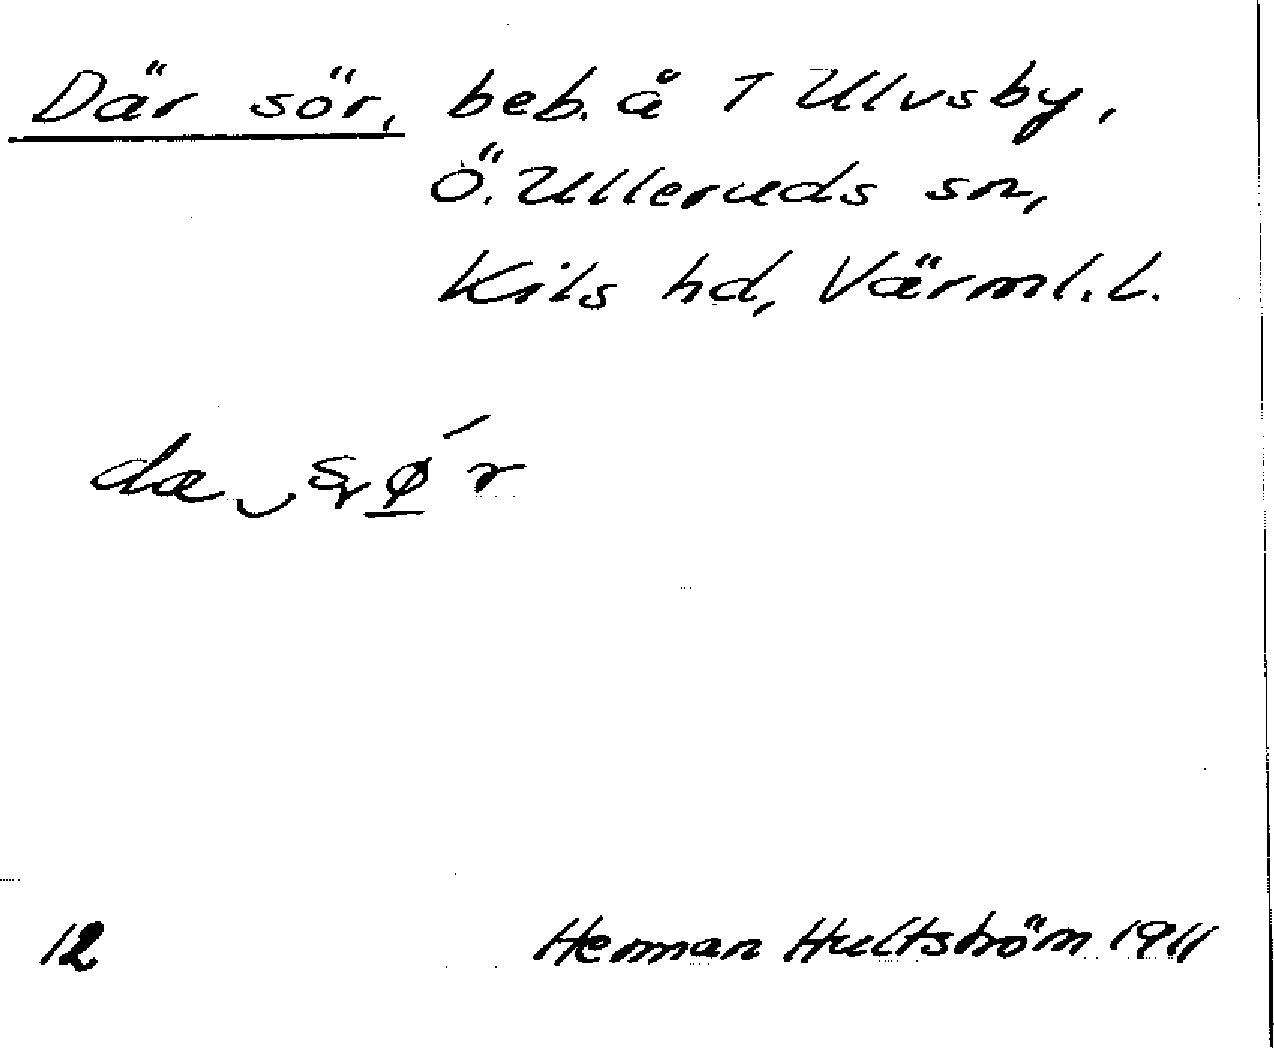 Där sör, beb. å 1 Ulvsby,
Ö. Ulleruds sn,
Kils hd, Värml. l.
dæ
12 Herman Hultström 1911